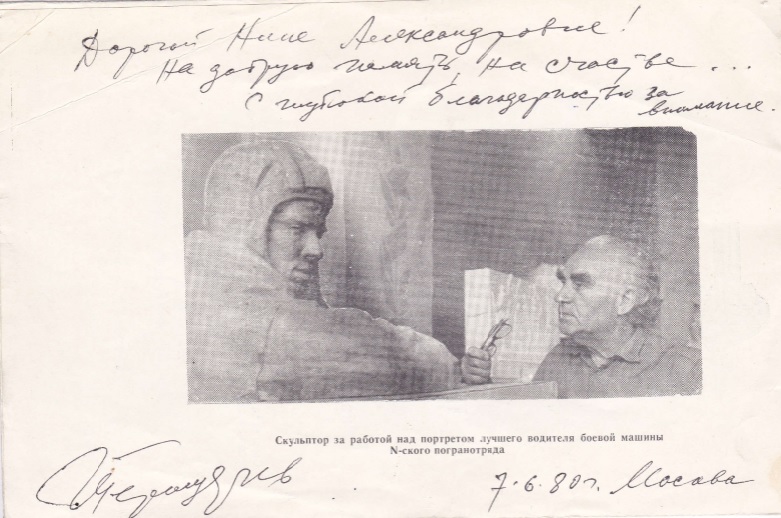 Дорогой Нине Александровне!
На добрую память, на счастье...
С глубокой благодарностью за
внимание.
Скульптор за работой над портретом лучшего водителя боевой машины
N-ского погранотряда
7.6.80г. Москва